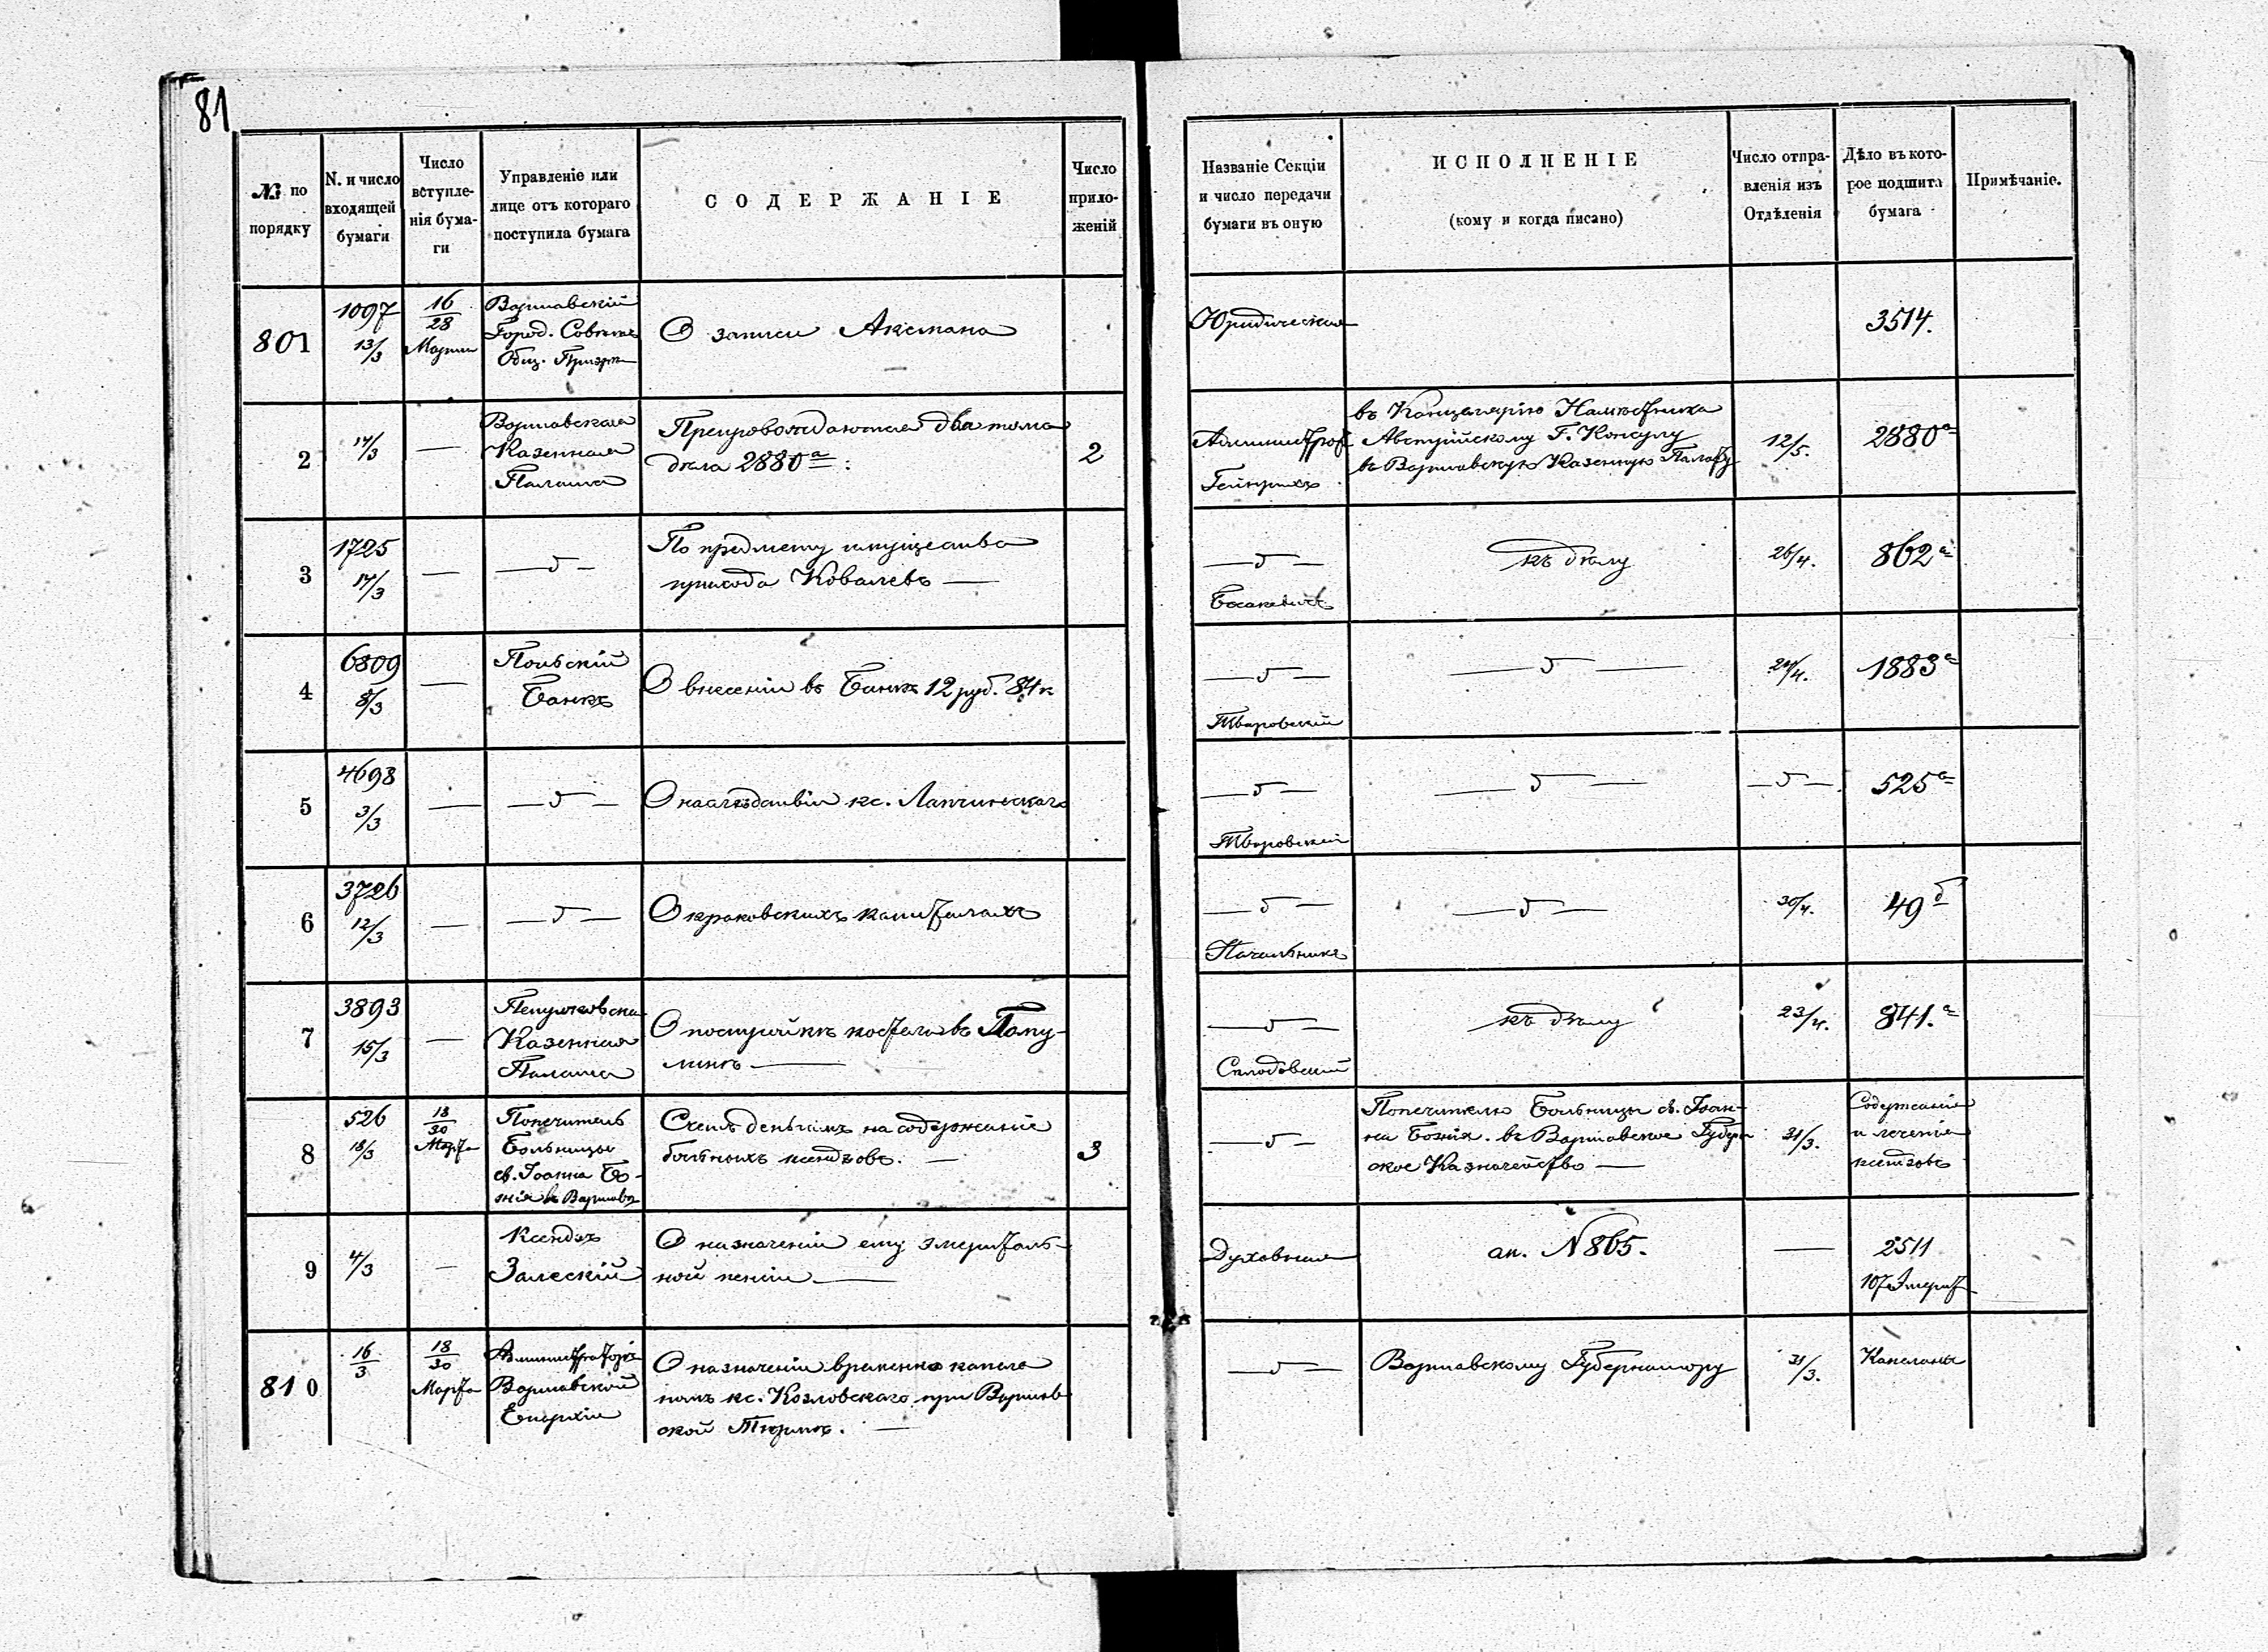 81
№ по порядку
N. и число входящей бумаги
Число вступле-нія бума-ги
Управленіе или лице отъ котораго поступила бумага
СОДЕРЖАНІЕ
Число прило-женій
Названіе Секціи и число передачи бумаги въ оную
ИСПОЛНЕНІЕ
(кому и когда писано)
Число отпра-вленія изъ Отдѣленія
Дѣло въ кото-рое подшита бумага
Примѣчаніе.
801
1097
13/3
16/28
Варшавскій
Город. Совѣтъ
Общ.
О записи
Юридическая
3514.
2
17/3
—
Варшавская
Казенная
Палата
Препровождаются два тома
дѣла 2880а:
2
въ Канцелярію Намѣстника
Австрійскому Г. Консулу
въ Варшавскую Казенную Палату
12/5.
2880а
3
1725
17/3
—
— " —
По предмету имущества
прихода Ковалевъ —
— " —
къ дѣлу
26/4.
862а
4
6809
8/3
—
Польскій
Банкъ
О внесеніи въ Банкъ 12 руб. 84 к
— " —
Творовскій
— " —
24/4.
1883а
5
4698
3/3
—
— " —
О наслѣдствіи кс.
— " —
Творовскій
— " —
— " —
525а
6
3726
12/3
—
— " —
О краковскихъ капиталахъ
— " —
Начальникъ
— " —
30/4.
49б
7
3893
15/3
—
Казенная
Палата
О постройкѣ костела въ
— " —
Склодовскій
къ дѣлу
23/4.
841.а
8
526
18/3
18/30
Марта
Попечитель
Больницы
св. Іоанна Бо-
жія въ Варшавѣ
Счетъ деньгамъ на содержаніе
больныхъ ксендзовъ. —
3
— " —
Попечителю Больницы св. Іоан-
на Божія. въ Варшавское Губерн
ское Казначейство —
31/3.
Содержаніе
и леченіе
ксендзовъ
9
4/3
—
Ксендзъ
Залескій
О назначеніи ему эмериталь-
ной пенсіи —
Духовная
ап. N 865.
—
2511
107 Эмерит
810
16/3
18/30
Марта
Администраторъ
Варшавской
Епархіи
О назначеніи временно капела
номъ кс. Козловскаго при Варшав
ской Тюрьмѣ. —
— " —
Варшавскому Губернатору
31/3.
Капеланы